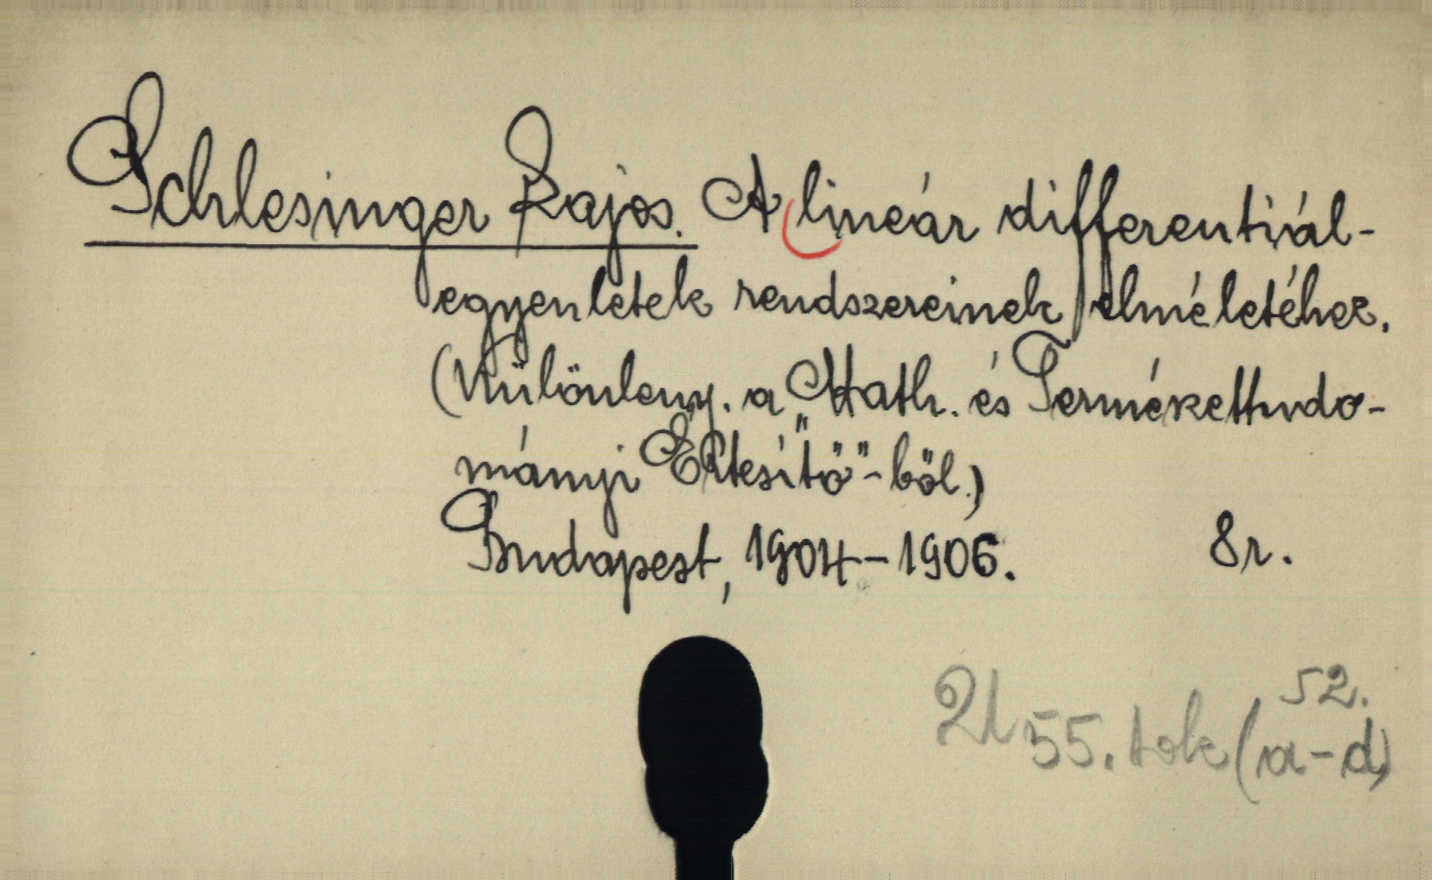 Schlesinger Lajos. A lineár differentiál-
egyenletek rendszereinek elméletéhez.
(Különleny. a „Math. és Természettudo-
mányi Értesítő"-ből.)
Budapest, 1904-1906. 8r.
52.
55. tok (a-d)